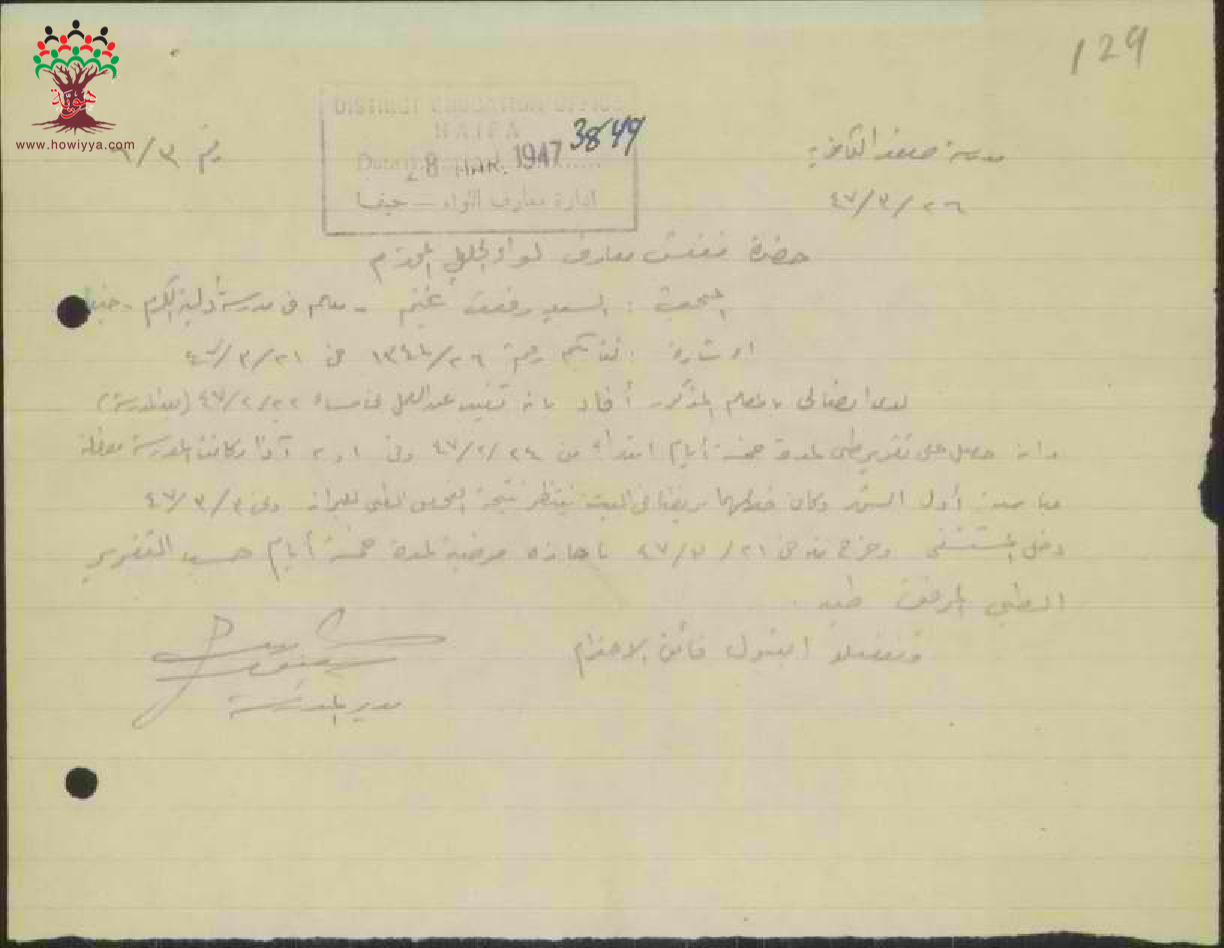 129
هوية
www.howiyya.com
DISTRICT EDUCATION OFFICE
HAIFA
3849
28 MAR. 1947
ادارة معارف اللواء — حيفا
مدرسة صفد الثانوية
رقم ٦/٣
٤٧/٣/٢٦
حضرة مفتش معارف لواء الجليل المحترم
المبحث : السيد رفعت غنيم - معلم في مدرسة
الاشارة : كتابكم رقم ١٣٤٤/٢٦ في ٤٧/٣/٢١
لدى اتصالي بالمعلم المذكور أفاد بانه تغيب عن العمل في مساء ٤٧/٢/٢٢
وانه حصل على تقرير طبي لمدة خمسة أيام ابتداء من ٤٧/٢/٢٤ وفي ١ و ٢ آذار كانت المدرسة معطلة
أول الشهر وكان خلالهما مريضا في البيت ينتظر نتيجة الفحص الطبي وفي ٤٧/٣/٣
دخل المستشفى وخرج منه في ٤٧/٣/٢١ باجازة مرضية لمدة خمسة أيام حسب التقرير
الطبي المرفق طيه
وتفضلوا بقبول فائق الاحترام
مدير المدرسة